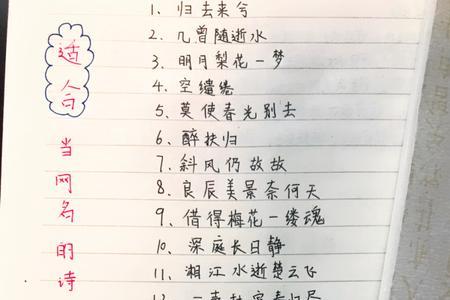 适合当网名的诗
1、归去来兮
2、几曾随逝水
3、明月梨花一梦
4、空缱绻
5、莫使春光别去
6、醉扶归
7、斜风仍故故
8、良辰美景奈何天
9、借得梅花一缕魂
10、深庭长日静
11、湘江水逝楚云飞